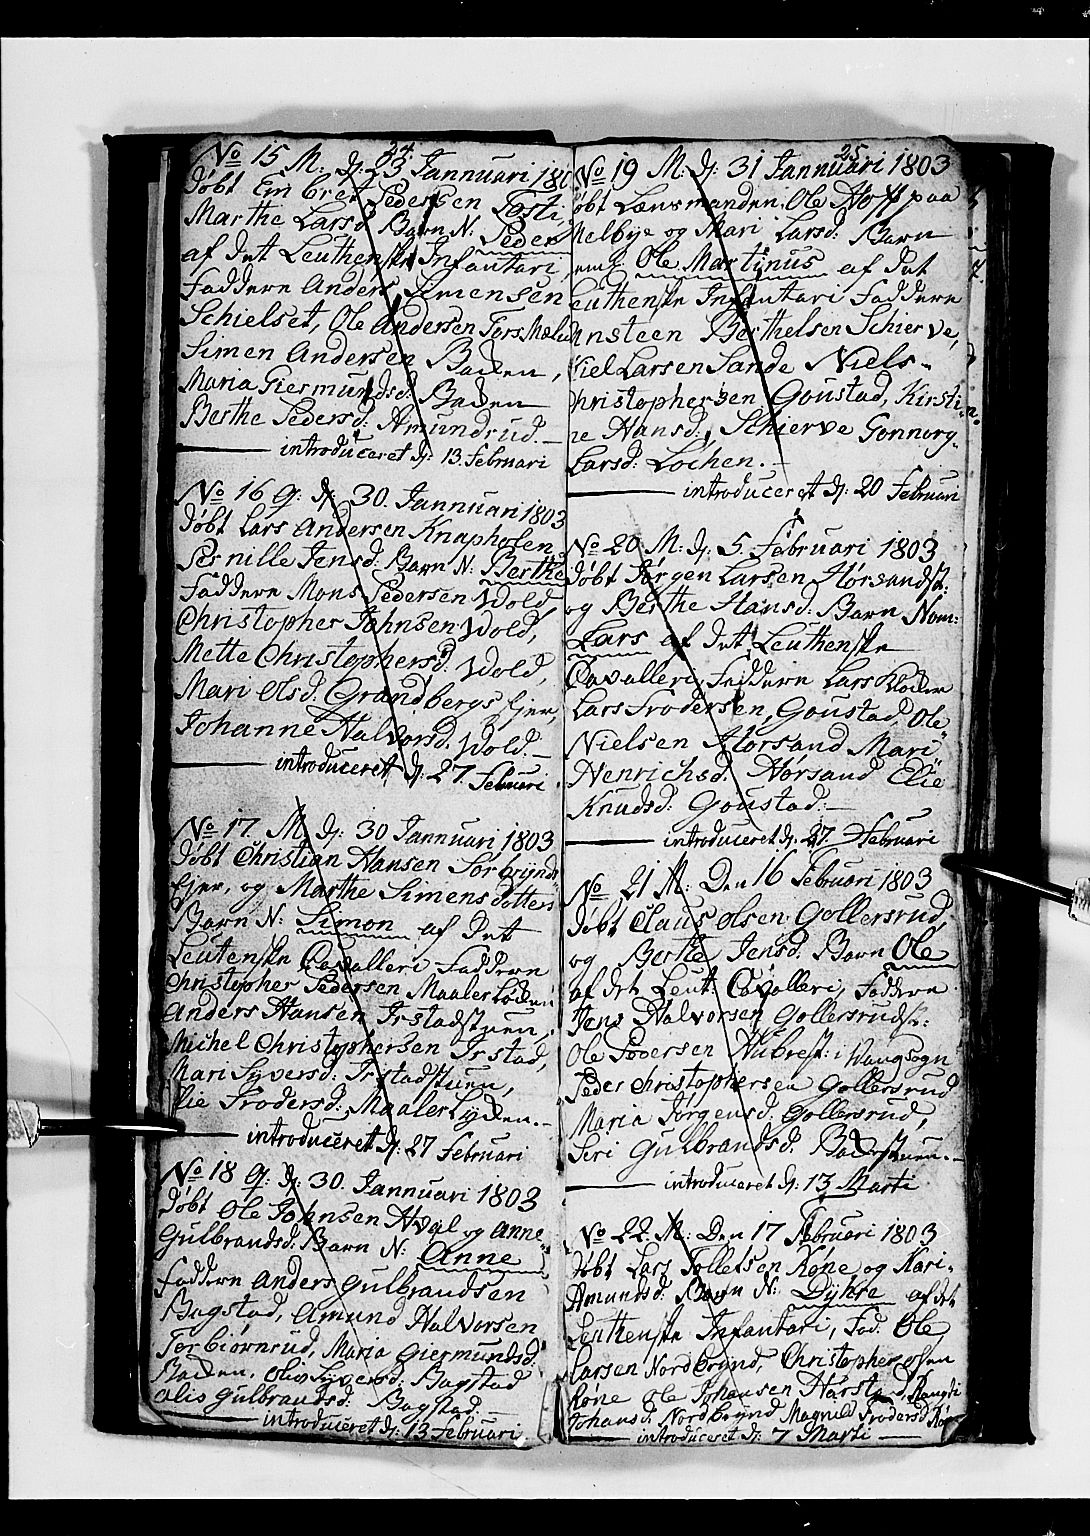 24.
No 15 M: dj: 23 Jannuari 180
døbt Em bret Pedersen Tosti,
Marthe Larsd Barn N: Peder
af det Leuthenske Infantari
Faddere Anders Simensen
Schielset, Ole Andersen
Simen Andersen Baden,
Maria Giermundsd: Baden
Berthe Pedersd: Amundrud.
introduceret dj: 13. Februari
No 16 Q: dj: 30. Jannuari 1803
døbt Lars Andersen Knapholen
Pernille Jensd: Barn N: Berthe
Faddere Mons Pedersen Wold
Christopher Johnsen Wold,
Mette Christophersd: Wold,
Mari Olsd: Grandbergs Ejer,
Johanne Halvorsd: Wold.
introduceret dj: 27. Februari
No 17. M: dj: 30 Jannuari 1803
døbt Christian Hansen Sørbrynds
Ejer, og Marthe Simens datters
Barn N: Simon af det
Leutenske Cavalleri Faddere
Christopher Pedersen
Anders Hansen Irstadstuen,
Michel Christophersen Irstad,
Mari Syversd: Irstadstuen,
Elie Frodersd:
introduceret dj: 27 Februari
No 18 Q: dj: 30. Jannuari 1803
døbt Ole Johnsen Hval og Anne
Gulbrandsd: Barn N: Anne
Faddere Anders Gulbrandsen
Bagstad, Amund Halvorsen
Torbiørnrud, Maria Giermundsd:
Baden, Syversd: Bagstad
Olis Gulbrandsd: Bagstad.
introduceret dj: 13 Februari
25
No 19 M: dj: 31 Jannuari 1803
øbt Lænsmanden Ole Hoff paa
Melbye og Mari Larsd: Barn
Ole Martinus af det
euthenske Infantari Faddere
nsteen Berthelsen Schierve,
iel Larsen Sande Niels
hristophersen Goustad, Kirsti-
ne Hansd: Schierve Gonnorg.
Larsd: Lochen.
introduceret dj: 20 Februari
No 20 M: dj: 5. Februari 1803
døbt Jørgen Larsen Horsandst:
og Berthe Hansd: Barn Nom:
Lars af det Leuthenske
Cavalleri, Faddere Lars
Lars Frodersen, Goustad, Ole
Nielsen Horsand Mari
Henrichsd: Horsand Elie
Knudsd: Goustad.
introduceret dj: 27 Februari
No 21 M: Den 16 Februari 1803
døbt Claus Olsen Gollersrud,
og Berthe Jensd: Barn Ole
af det Leut: Cavalleri, Faddere
Jens Halvorsen Gollersrudst:
Ole Pedersen i Wangsogn
Peder Christophersen Gollersrud
Maria Jørgensd: Gollersrud,
Siri Gulbrandsd: Badenstuen.
introduceret dj: 13 Marti
No 22. M: Den 17 Februari 1803
døbt Lars Tollefsen Røne og Kari
Amundsd: Barn N: Dyhre af det
Leuthenske Infantari, Fad: Ole
Larsen Nordbrynd, Christopher Olsen
Røne Ole Johansen Harstad
Johansd: Nordbrynd Magnild Frodersd
introduceret dj: 7 Marti